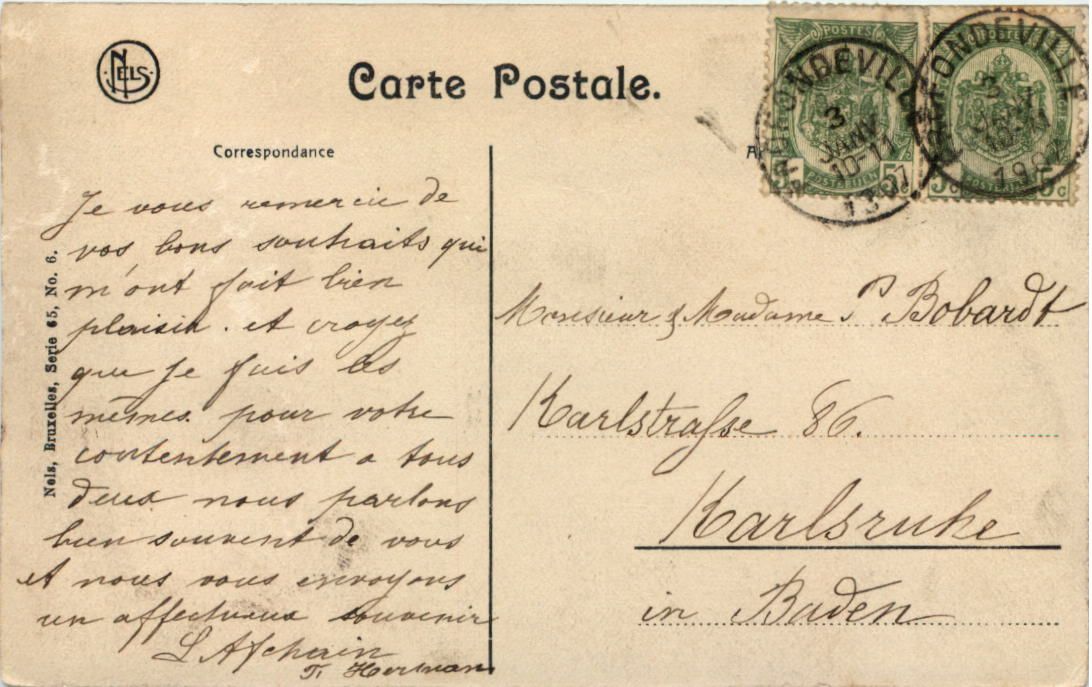 NELS
Carte Postale.
POSTES
POSTES
PROFONDEVILLE
3
JANV
10-11
1907
PROFONDEVILLE
3
JANV
10-11
1907
5c
POSTERIJEN
5c
5c
POSTERIJEN
5c
Correspondance
Nels, Bruxelles, Serie 65, No. 6.
Je vous remercie de
vos bons souhaits qui
m'ont fait bien
plaisir. et croyez
que je fais les
mêmes. pour votre
contentement a tous
deux nous parlons
bien souvent de vous
et nous vous envoyons
un affectueux souvenir
Monsieur & Madame P Bobardt
Karlstrasse 86.
Karlsruhe
in Baden